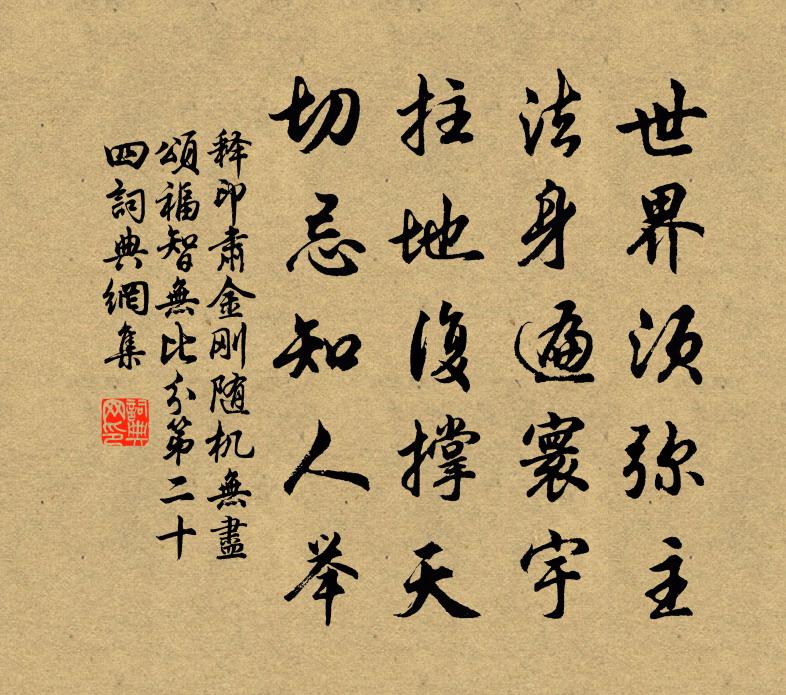 世界须弥主
法身遍寰宇
拄地復撑天
切忌知人举
释印肃金刚随机無盡
頌福智無比分第二十
四詞典網集
詞典网印